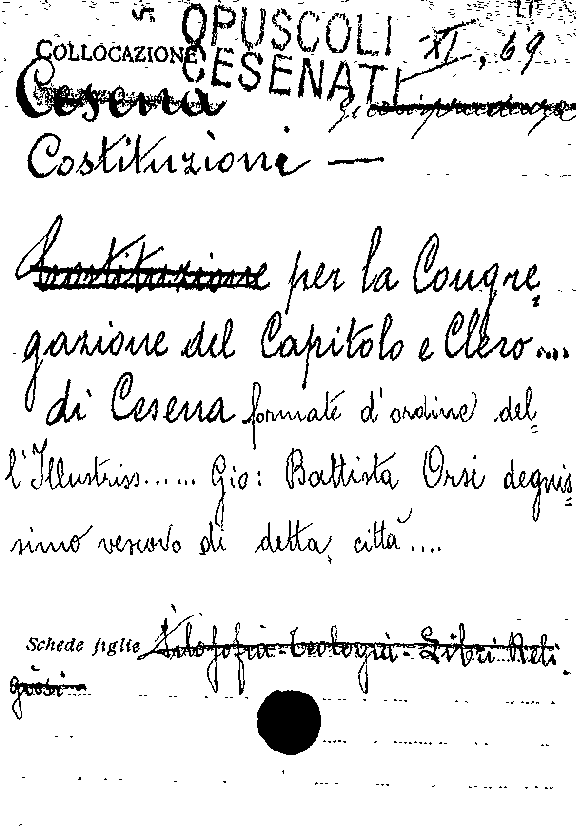 OPUSCOLI
CESENATI
COLLOCAZIONE XI, 69
Cesena Giurisprudenza
Costituzioni —
Costituzione per la Congre
gazione del Capitolo e Clero....
di Cesena formate d'ordine del
l'Illustriss...... Gio: Battista Orsi degnis
simo vescovo di detta città....
Schede figlie Filosofia-Teologia-Libri Reli
giosi